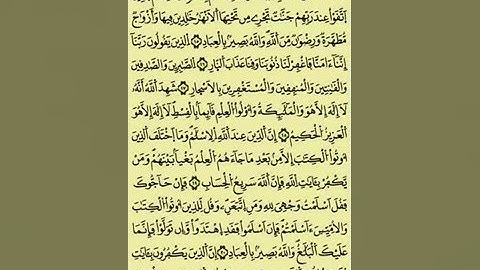 اِتَّقَوْا عِنْدَ رَبِّهِمْ جَنَّٰتٌ تَجْرِے مِن تَحْتِهَا اَ۬لَانْهَٰرُ خَٰلِدِينَ فِيهَا وَأَزْوَٰجٌ
مُّطَهَّرَةٌ وَرِضْوَٰنٌ مِّنَ اَ۬للَّهِ وَاللَّهُ بَصِيرٌۢ بِالْعِبَادِ اِ۬لذِينَ يَقُولُونَ رَبَّنَآ
إِنَّنَآ ءَامَنَّا فَاغْفِرْ لَنَا ذُنُوبَنَا وَقِنَا عَذَابَ اَ۬لنّارِ اِ۬لصَّٰبِرِينَ وَالصَّٰدِقِينَ
وَالْقَٰنِتِينَ وَالْمُنفِقِينَ وَالْمُسْتَغْفِرِينَ بِالَاسْحارِ شَهِدَ اَ۬للَّهُ أَنَّهُۥ
لَآ إِلَٰهَ إِلَّا هُوَ وَالْمَلَٰٓئِكَةُ وَأُوْلُواْ اُ۬لْعِلْمِ قَآئِماَۢ بِالْقِسْطِ لَآ إِلَٰهَ إِلَّا هُوَ
اَ۬لْعَزِيزُ اُ۬لْحَكِيمُ إِنَّ اَ۬لدِّينَ عِندَ اَ۬للَّهِ اِ۬لِاسْلَٰمُ وَمَا اَ۪خْتَلَفَ اَ۬لذِينَ
أُوتُواْ اُ۬لْكِتَٰبَ إِلَّا مِنۢ بَعْدِ مَا جَآءَهُمُ اُ۬لْعِلْمُ بَغْياَۢ بَيْنَهُمْ وَمَنْ
يَّكْفُرْ بِـَٔايَٰتِ اِ۬للَّهِ فَإِنَّ اَ۬للَّهَ سَرِيعُ اُ۬لْحِسَابِ فَإِنْ حَآجُّوكَ
فَقُلَ اَسْلَمْتُ وَجْهِيَ لِلهِ وَمَنِ اِ۪تَّبَعَنِۦ وَقُل لِّلذِينَ أُوتُواْ اُ۬لْكِتَٰبَ
وَالُامِّيِّـۧنَ ءَآسْلَمْتُمْ فَإِنَ اَسْلَمُواْ فَقَدِ اِ۪هْتَدَواْ وَّإِن تَوَلَّوْاْ فَإِنَّمَا
عَلَيْكَ اَ۬لْبَلَٰغُ وَاللَّهُ بَصِيرٌۢ بِالْعِبَادِ إِنَّ اَ۬لذِينَ يَكْفُرُونَ بِـَٔايَٰتِ